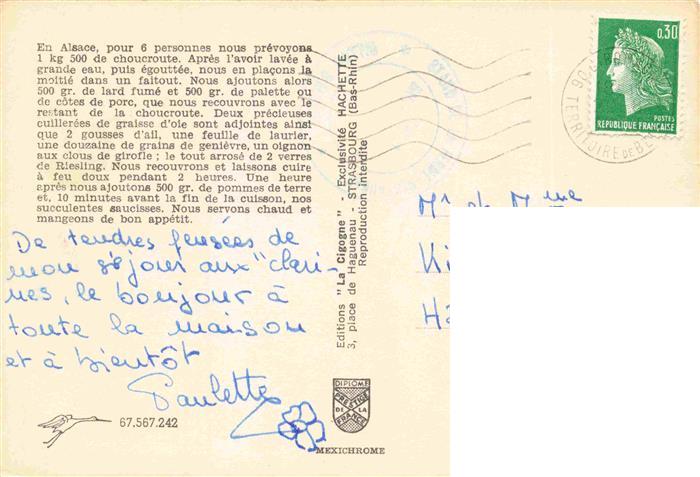 En Alsace, pour 6 personnes nous prévoyons
1 kg 500 de choucroute. Après l'avoir lavée à
grande eau, puis égouttée, nous en plaçons la
moitié dans un faitout. Nous ajoutons alors
500 gr. de lard fumé et 500 gr. de palette ou
de côtes de porc, que nous recouvrons avec le
restant de la choucroute. Deux précieuses
cuillerées de graisse d'oie sont adjointes ainsi
que 2 gousses d'ail, une feuille de laurier,
une douzaine de grains de genièvre, un oignon
aux clous de girofle ; le tout arrosé de 2 verres
de Riesling. Nous recouvrons et laissons cuire
à feu doux pendant 2 heures. Une heure
après nous ajoutons 500 gr. de pommes de terre
et, 10 minutes avant la fin de la cuisson, nos
succulentes saucisses. Nous servons chaud et
mangeons de bon appétit.
De tendres pensées de
mon séjour aux "clari-
nes, le bonjour à
toute la maison
et à bientôt
Paulette
67.567.242
Editions "La Cigogne" - Exclusivité HACHETTE
3, place de Haguenau - STRASBOURG (Bas-Rhin)
Reproduction interdite
DIPLOME
PRESTIGE
DE LA
FRANCE
MEXICHROME
0,30
POSTES
REPUBLIQUE FRANÇAISE
90 TERRITOIRE DE BE
Mr et Mme
Ki
Ha